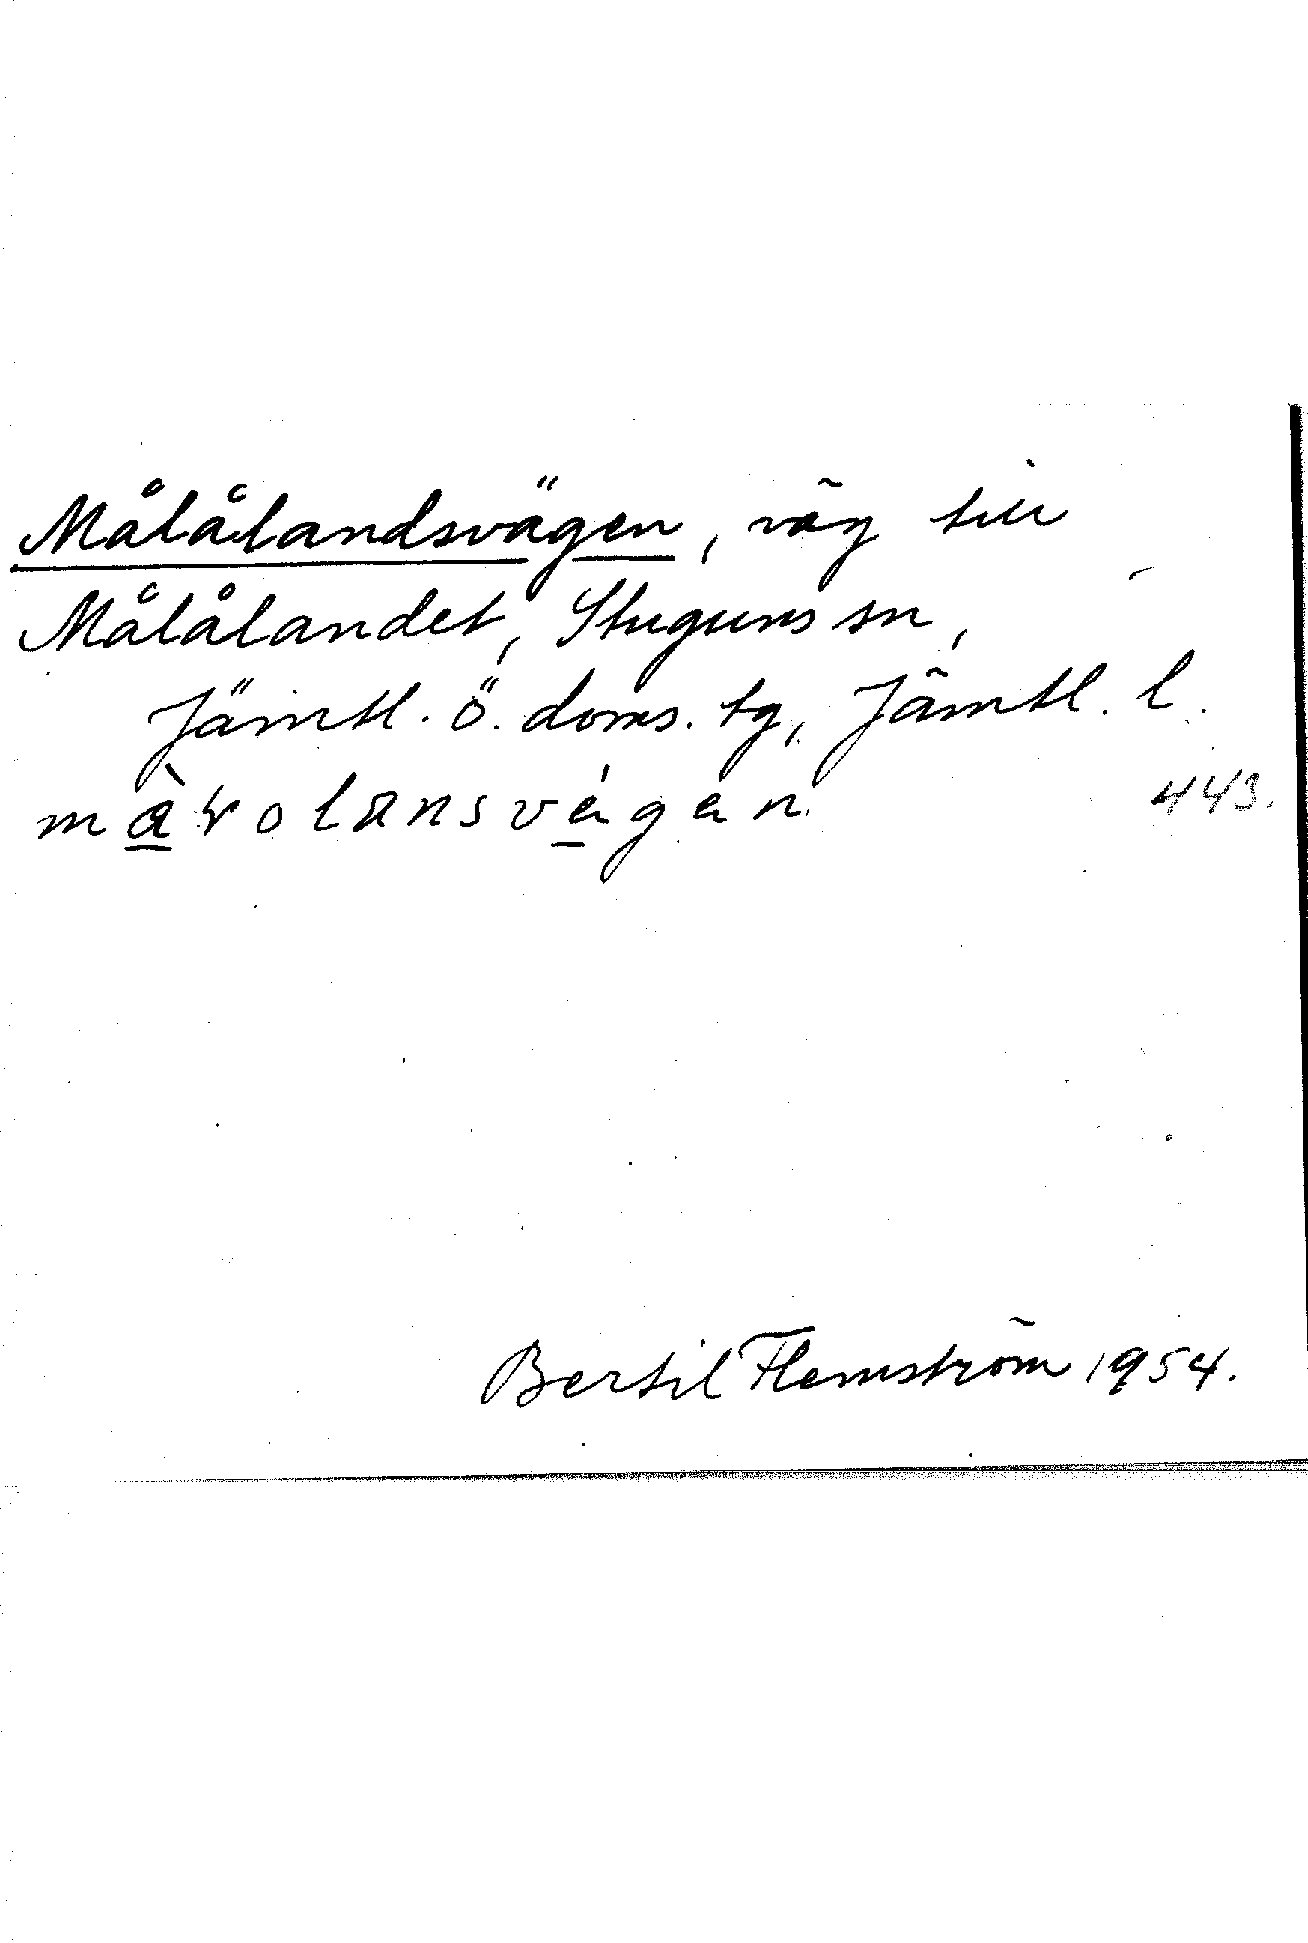 Målålandsvägen, väg till
Målålandet, Stuguns sn,
Jämtl. ö. doms. tg, Jämtl. l.
443.
Bertil Flemström 1954.